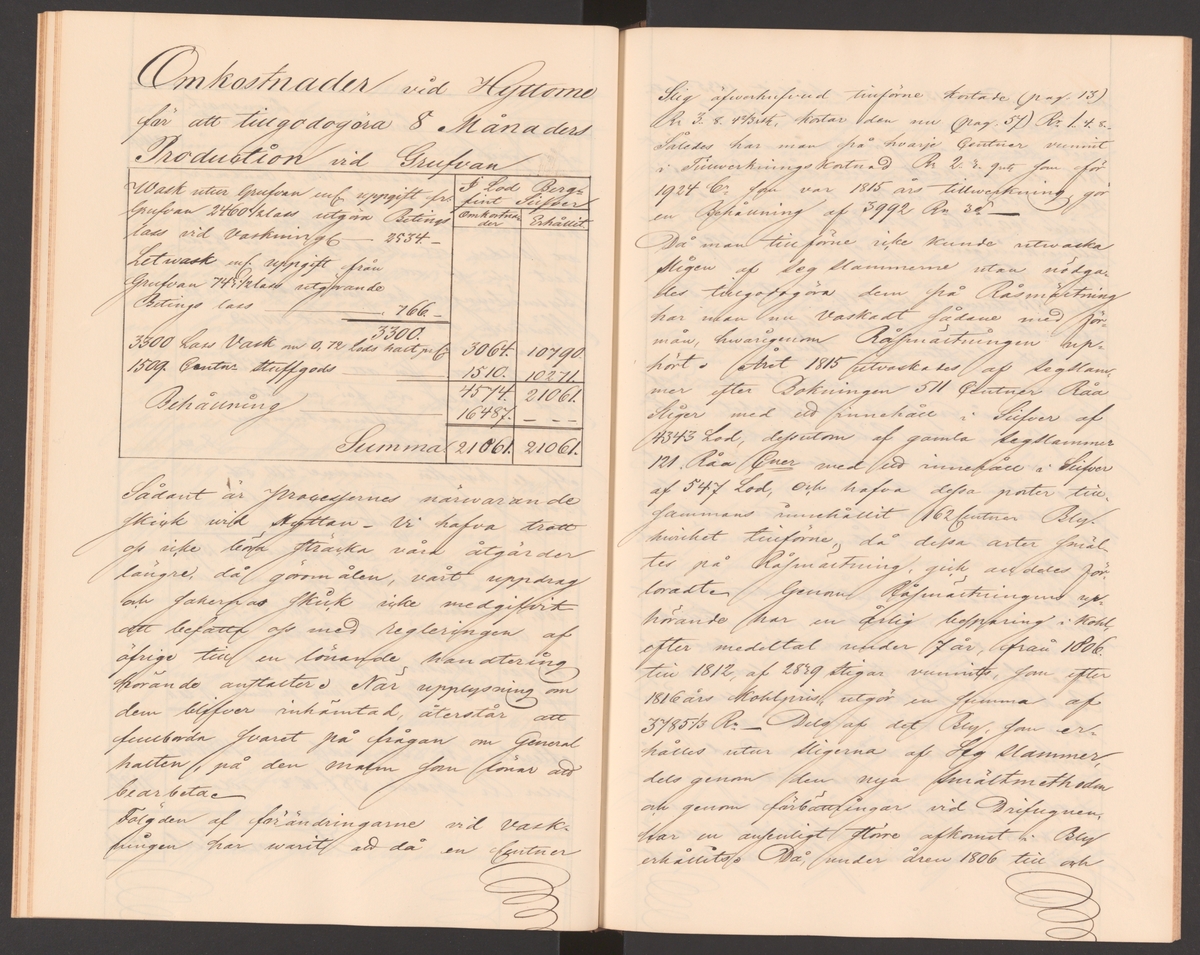 Omkostnader vid Hyttorne
för att tillgodogöra 8 Månaders
Production vid Grufvan
I Lod Berg-
fint Silfver
Omkostna-
der
Erhållit
Wask utur Grufvan enl. uppgift fr.
Grufvan 2460 klass utgöra Betings
lass vid Vaskning 2534.-
Letwask enl. uppgift från
Grufvan 743 klass utgörande
Betings lass 766.-
3300.
3300 Lass Vask om 0,72 Lods halt pr C. 3064. 10790.
1509. Centn. Stuffgods 1510. 10271.
4574. 21061.
Behållning 16487. - - -
Summa 21061. 21061.
Sådant är processernes närwarande
skick wid Hyttan - Vi hafva trott
oss icke böra sträcka våra åtgärder
längre, då göromålen, vårt uppdrag
och sakernas skick icke medgifvit
att befatta oss med regleringen af
öfrige till en lönande handtering
hörande anstalter. När upplysning om
dem blifver inhämtad, återstår att
fullborda svaret på frågan om General
halten, på den malm som lönar att
bearbeta
Följden af förändringarne vid Vask-
ningen har warit att då en Centner
Slig tillförne kostade (pag. 13)
Rr 3. 8. kostar den nu (pag. 57) Rr 1. 4. 8.
Således har man på hvarje Centner vunnit
i Tillwerkningskostnad Rr 2. 3. som för
1924 Cr som var 1815 års tillwerkning gör
en Behållning af 3992 Rr 32
Då man tillförne icke kunde utwaska
sligen af Segslammerne utan nödga-
des tillgodogöra dem på Råsmältning
har man nu Vaskadt sådane med för-
mån, hwarigenom Råsmältningen up-
hört. Året 1815 utvaskades af segslam-
mer efter Bokningen 511 Centner Råa
Sliger med ett innehåll i Silfver af
4343 Lod, dessutom af gamla segslammer
121. Råa Cner med ett innehåll i Silfver
af 547 Lod, och hafva dessa poster till-
sammans innehållit 162 Centner Bly.
hwilket tillförne, då dessa arter smäl-
tes på Råsmältning, gick alldeles för-
loradt. Genom Råsmältningens up-
hörande har en årlig besparing i Kohl,
efter medeltal under 7 år, från 1806
till 1812, af 2839 Stigar vunnits, som efter
1816 års Kohlpris, utgör en Summa af
3785 1/3 Rr. - Dels af det Bly, som er-
hålles utur sligerna af Seg slammer,
dels genom den nya smältmethoden
och genom förbättringar vid Drifugnen,
har en ansenligt större afkomst i Bly
erhållits. Då, under åren 1806 till och